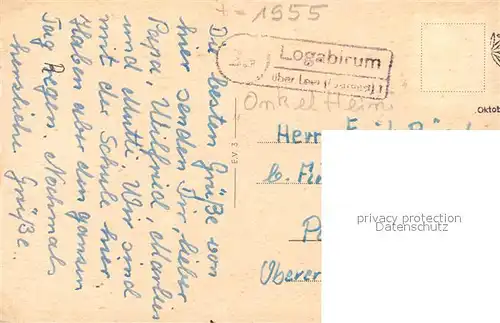 - 1955
Logabirum
über Leer
Onkel Heini
Oktob
Die besten Grüße von
hier senden Dir, lieber
Papa, Wilfried, Marlies
und Mutti. Wir sind
mit der Schule hier.
Haben aber den ganzen
Tag Regen. Nochmals
herzliche Grüße.
EV 3
Herrn
b.
Oberer
privacy protection
Datenschutz